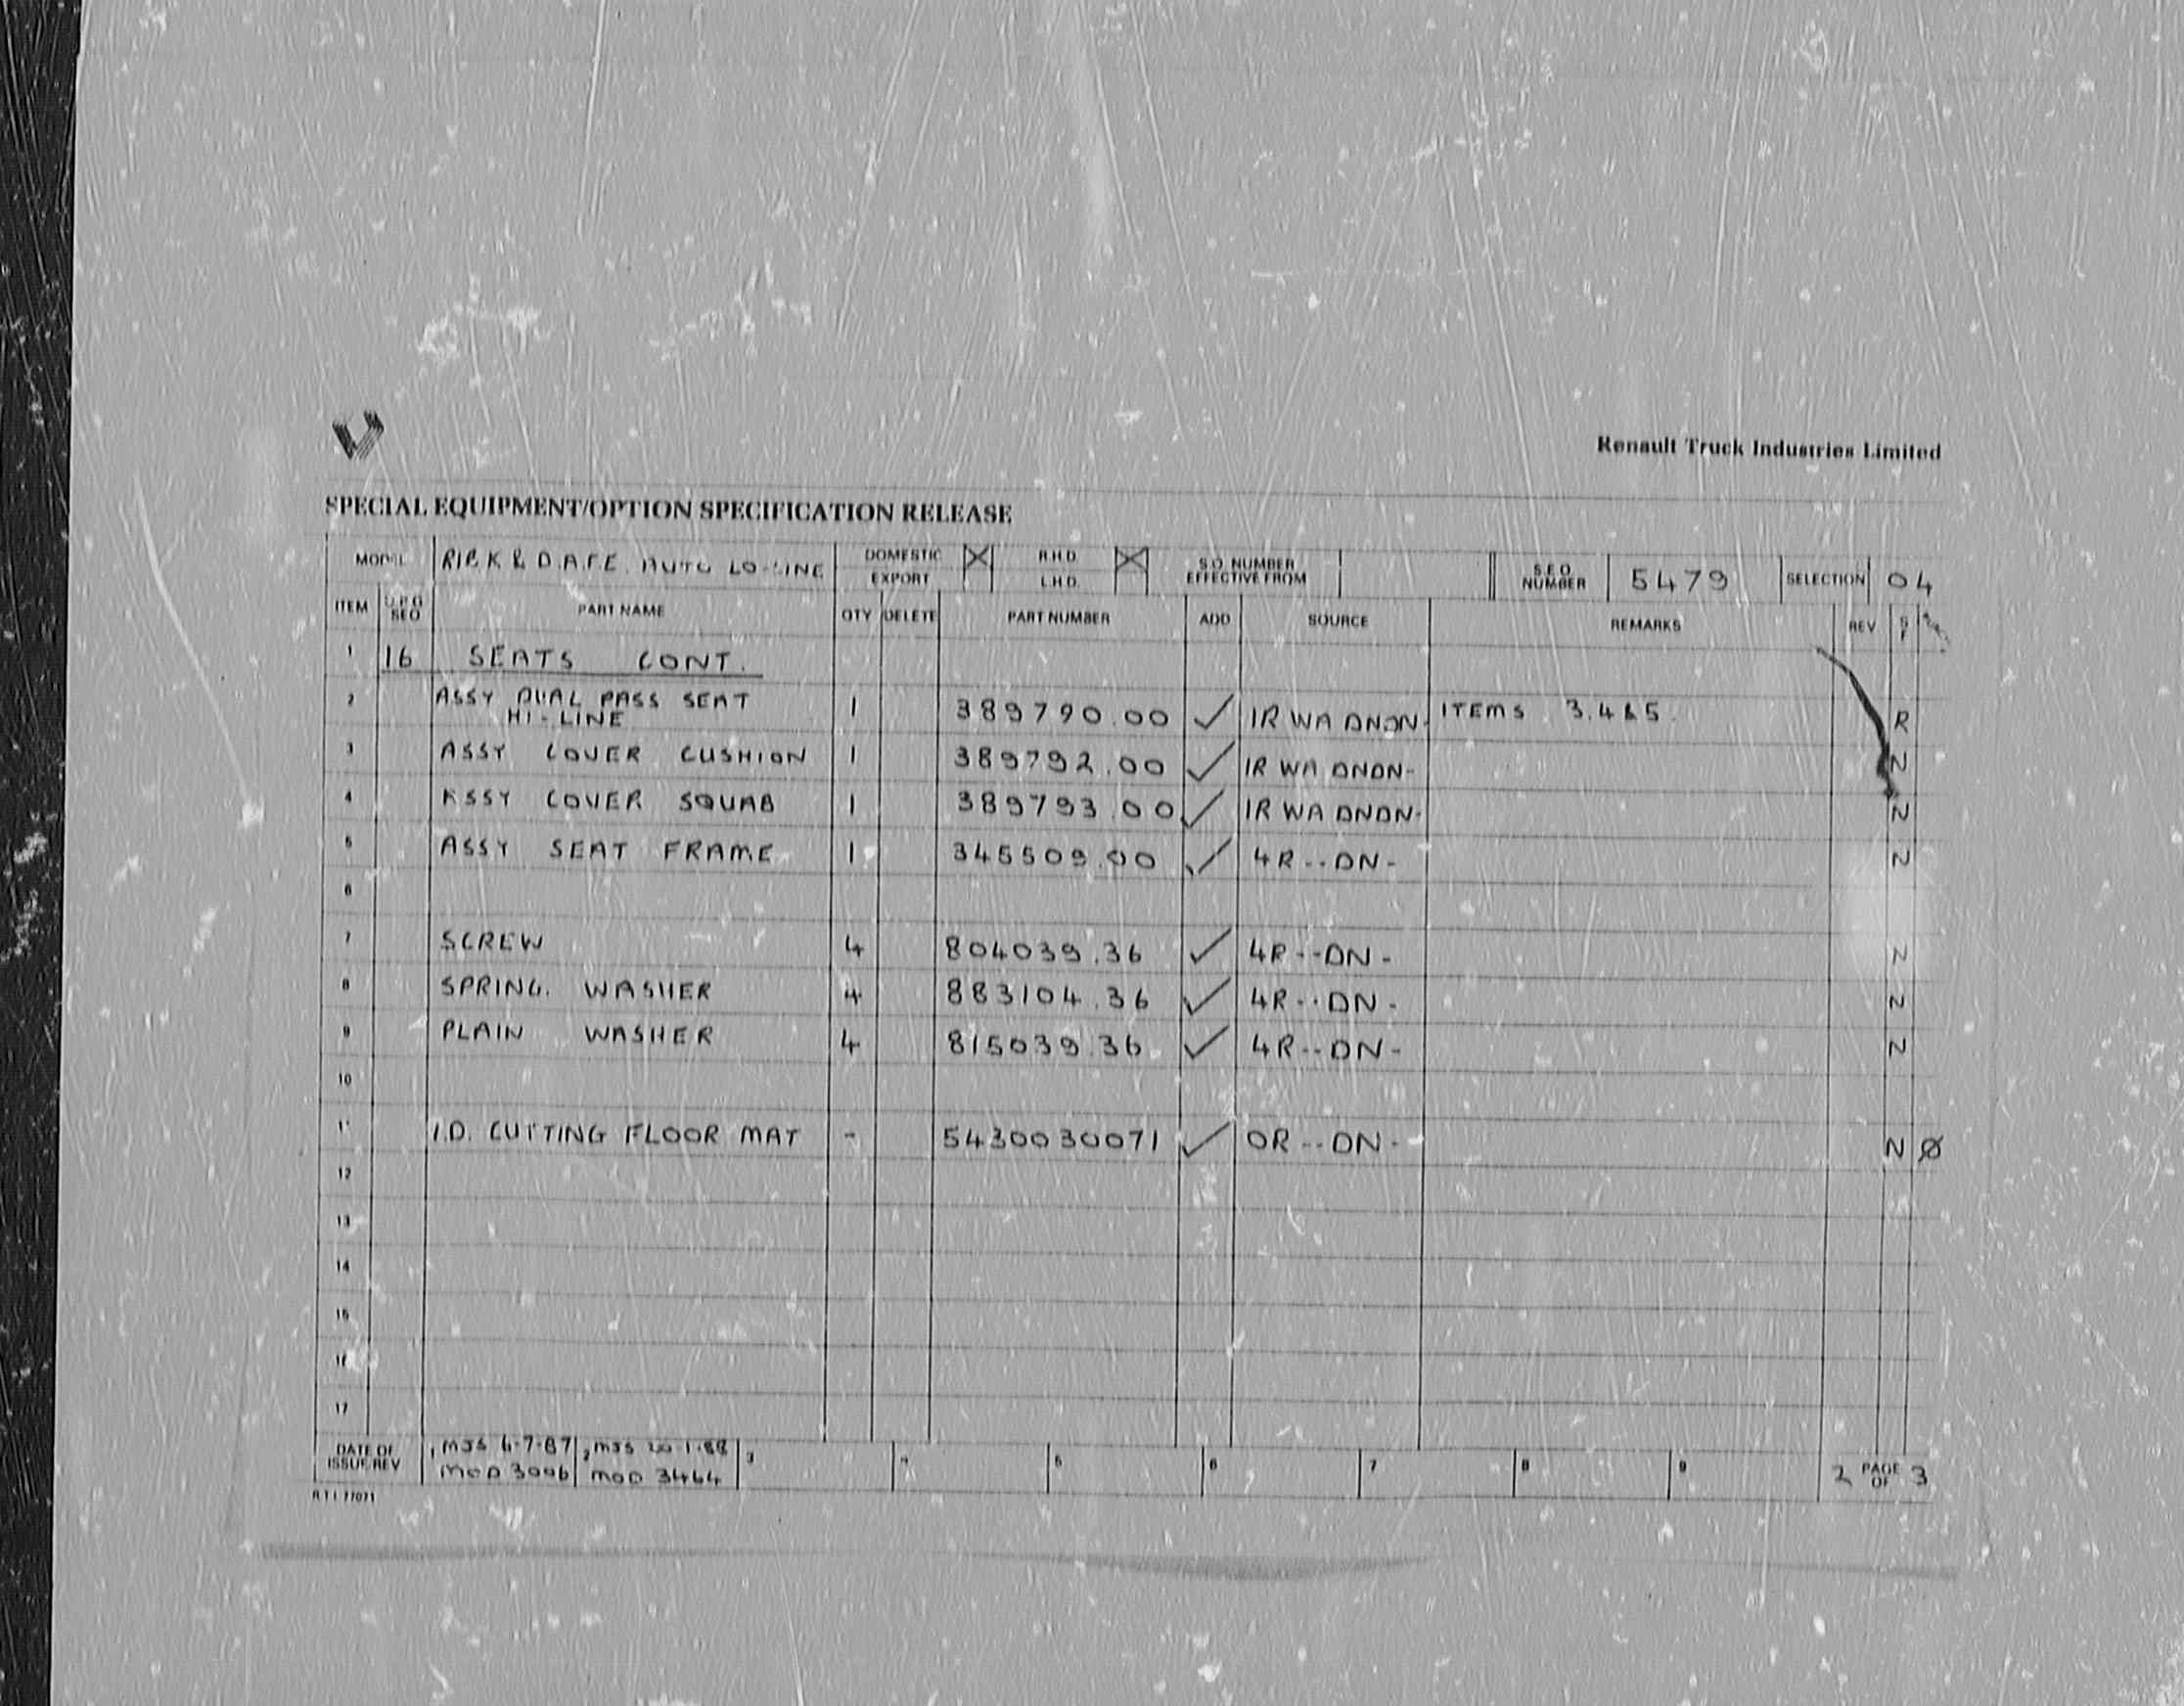 Renault Truck Industries Limited
SPECIAL EQUIPMENT/OPTION SPECIFICATION RELEASE
MODEL AUTO LO-LINE DOMESTIC R.H.D. S.O. NUMBER EFFECTIVE FROM S.E.O. NUMBER 5479 SELECTION 04
EXPORT L.H.D.
ITEM U.P.G SEQ PART NAME QTY DELETE PART NUMBER ADD SOURCE REMARKS REV S F
1 16 SEATS CONT.
2 ASSY DUAL PASS SEAT HI-LINE 1 389790.00 ✓ 1R WA DNDN- ITEMS 3.4&5. R
3 ASSY COVER CUSHION 1 389792.00 ✓ 1R WA DNDN- N
4 ASSY COVER SQUAB 1 389793.00 ✓ 1R WA DNDN- N
5 ASSY SEAT FRAME 1 345509.00 ✓ 4R--DN- N
6
7 SCREW 4 804039.36 ✓ 4R--DN- N
8 SPRING. WASHER 4 883104.36 ✓ 4R--DN- N
9 PLAIN WASHER 4 815039.36 ✓ 4R--DN- N
10
11 I.D. CUTTING FLOOR MAT - 5430030071 ✓ OR--DN- N Ø
12
13
14
15
16
17
DATE OF ISSUE/REV 1 MJS 6-7-87 2 MJS 20-1-88 3 4 5 6 7 8 9 2 PAGE OF 3
MOD 3006 MOD 3464
R T I 77071